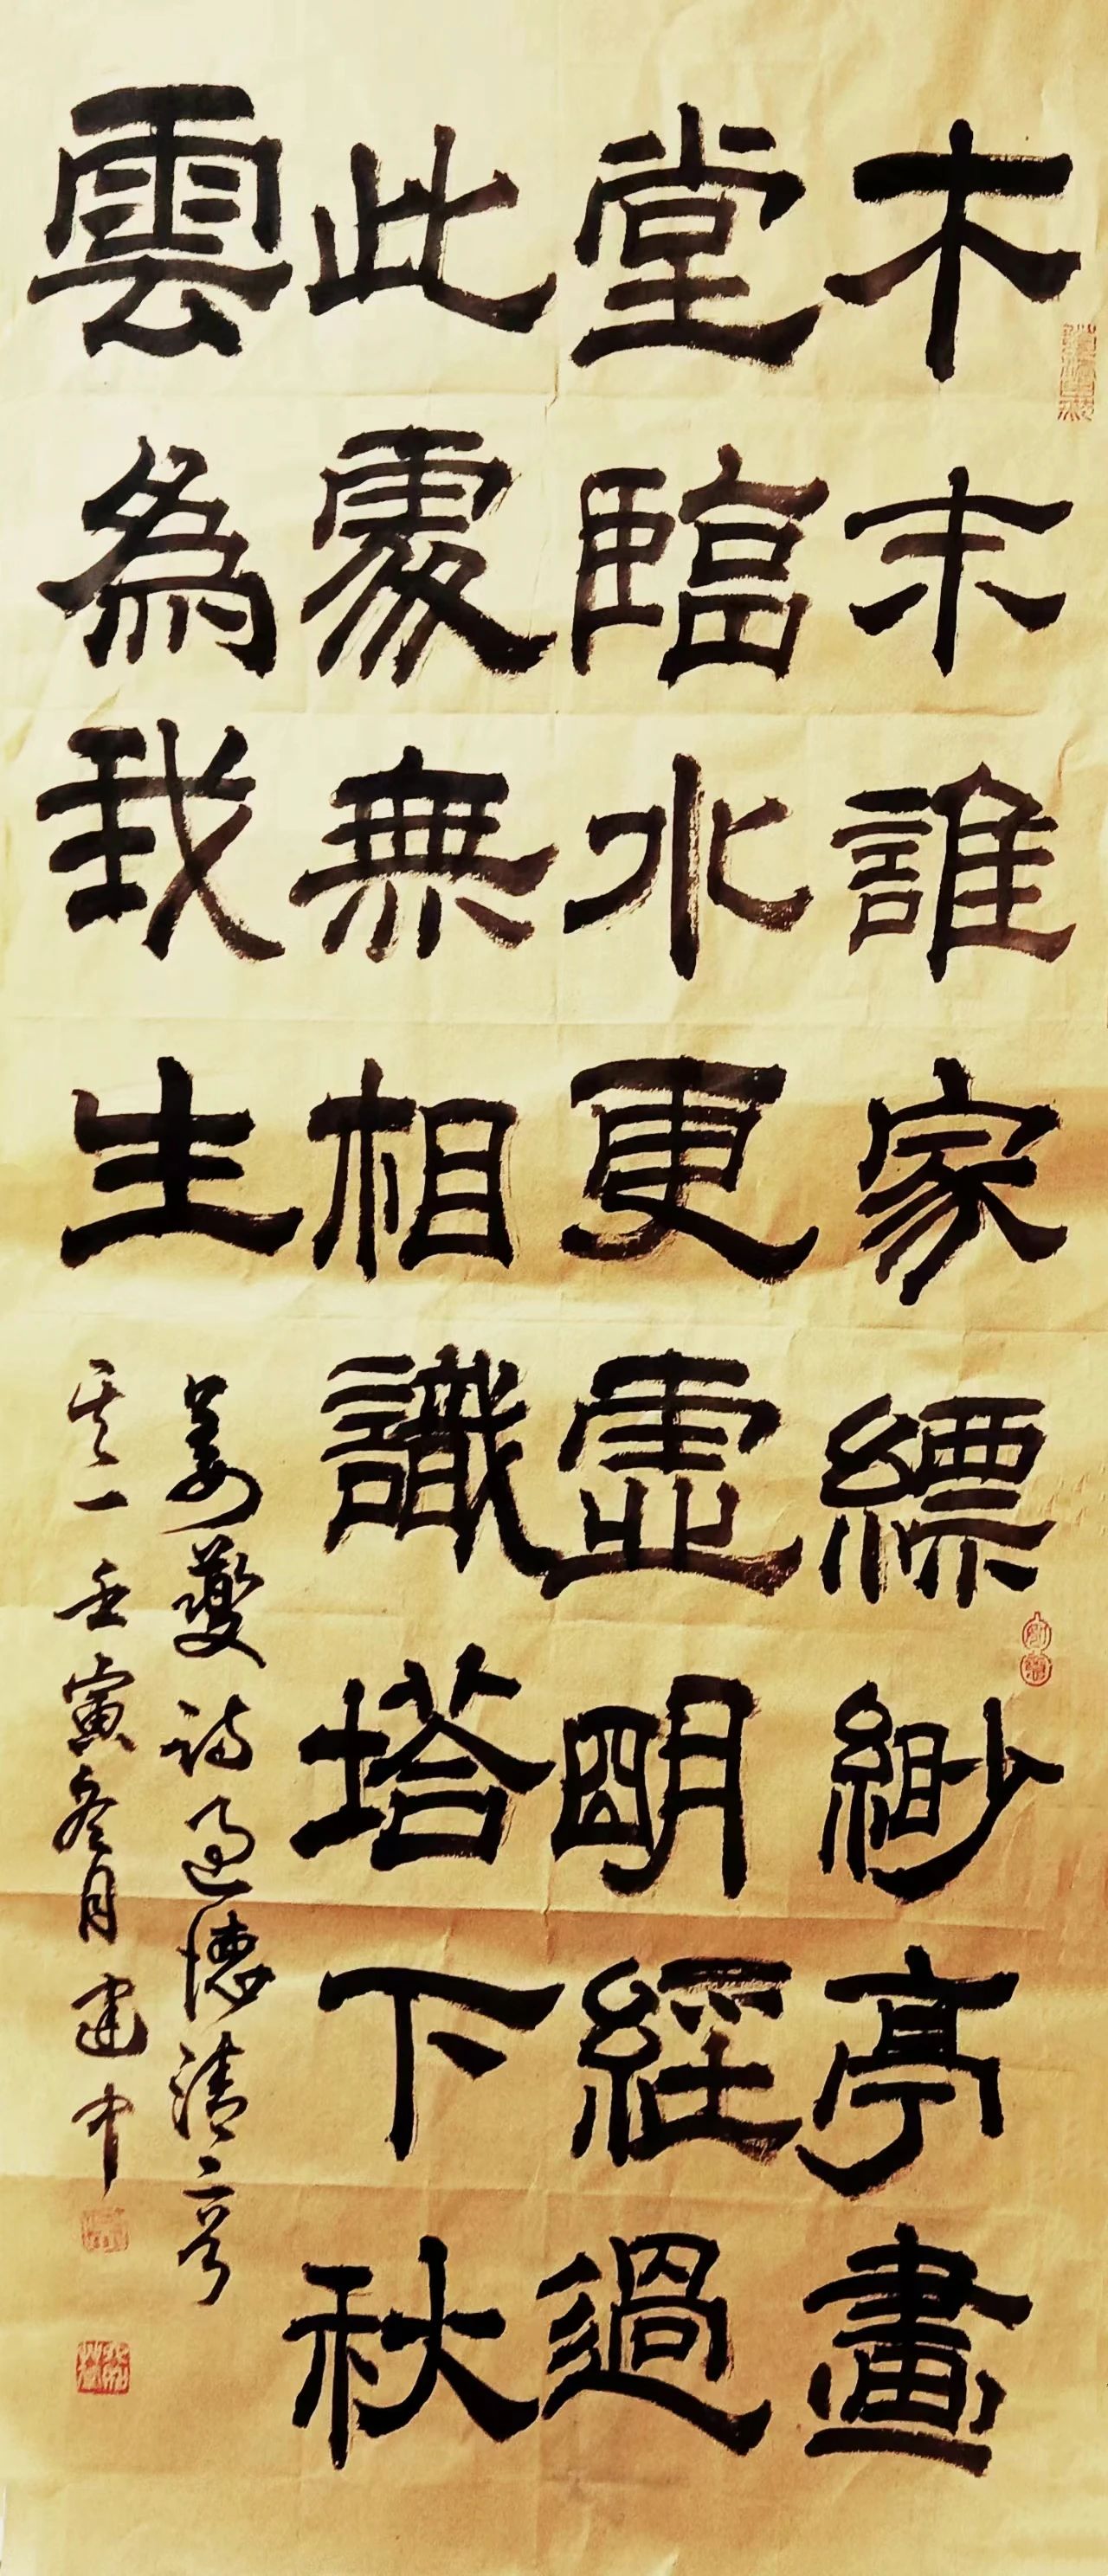 木末誰家縹緲亭畫
堂臨水更虛明經過
此處無相識塔下秋
雲為我生
姜夔詩過德清二首
其一壬寅冬月建中